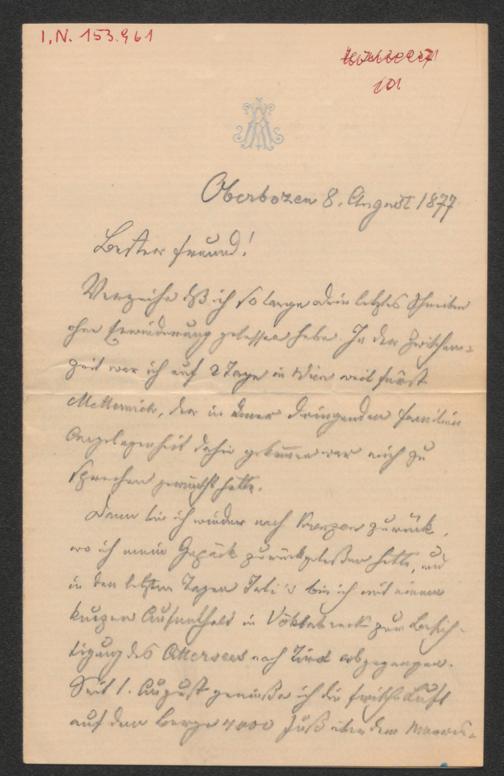 I.N. 153.961
101
Oberbozen 8. August 1877
Bester Freund!
Verzeihe daß ich so lange dein letztes Schreiben
ohne Erwiderung gelassen habe. In der Zwischen-
zeit war ich auf 2 Tage in Wien weil Fürst
Metternich, der in einer dringenden Familien
Angelegenheit dahin gekommen war mich zu
sprechen gewünscht hatte.
Dann bin ich wieder nach zurück,
wo ich mein Gepäck zurückgelassen hatte, und
in den letzten Tagen Juli's bin ich mit einem
kurzen Aufenthalt in Vöklabruck zur Besich-
tigung des Attersees nach Tirol abgegangen.
Seit 1. August genieße ich die frische Luft
auf dem Berge 4000 Fuß über dem Meeres-